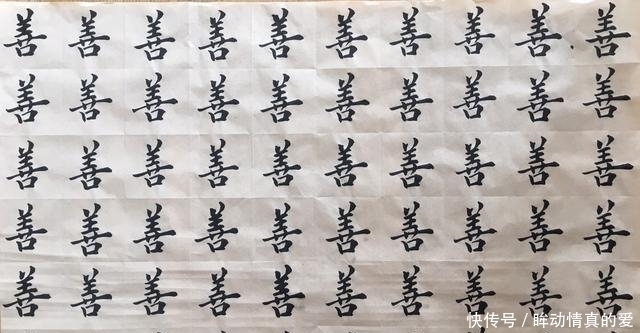 善善善善善善善善善善
善善善善善善善善善善
善善善善善善善善善善
善善善善善善善善善善
善善善善善善善善善善
快传号 / 眸动情真的爱